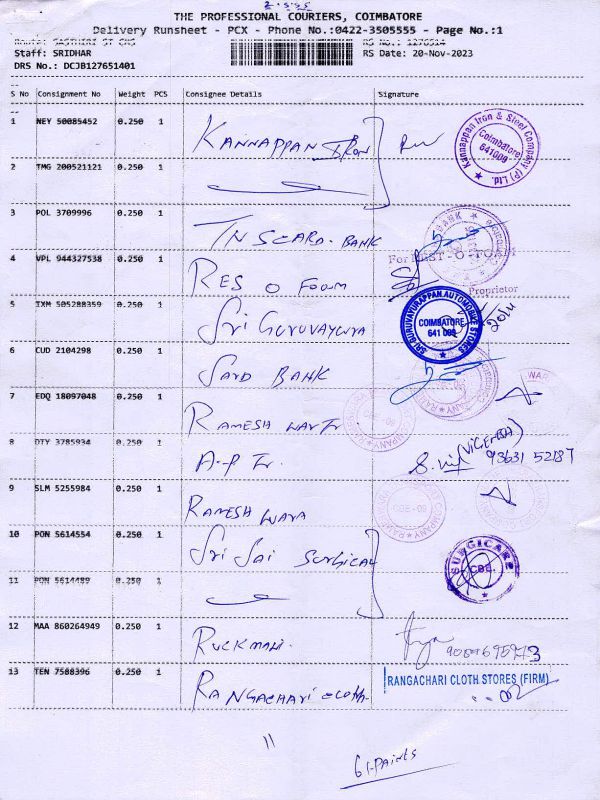 2-5.55
THE PROFESSIONAL COURIERS, COIMBATORE
Delivery Runsheet - PCX - Phone No.:0422-3505555 - Page No.:1
Route: SASTHIRI ST CNS RS No.: 1276514
Staff: SRIDHAR RS Date: 20-Nov-2023
DRS No.: DCJB127651401
S No Consignment No Weight PCS Consignee Details Signature
1 NEY 50085452 0.250 1 KANNAPPAN IRON
Kannappan Iron & Steel Company (P) Ltd. Coimbatore 641009
2 TMG 200521121 0.250 1
3 POL 3709996 0.250 1 TN SCARD-BANK
BANK
4 VPL 944327538 0.250 1 RES O FOUM
For REST-O-FOAM
Proprietor
5 IXM 505288359 0.250 1 Sri Guruvayura
SRI GURUVAYURAPPAN AUTOMOBILE STORES COIMBATORE 641 009
20/11
6 CUD 2104298 0.250 1 SARD BANK
7 EDQ 18097048 0.250 1 RAMESH WAR Tr
COMPANY CBE-09
8 DTY 3785934 0.250 1 A-P Tr. 93631 52187
9 SLM 5255984 0.250 1 RAMESH WARA
COMPANY CBE-09
10 PON 5614554 0.250 1 Sri Sai Surgical
SURGICARE CBE.
11 PON 5614489 0.250 1
12 MAA 860264949 0.250 1 RUCKMANI.
13 TEN 7588396 0.250 1 RANGACHARI CLOTH.
RANGACHARI CLOTH STORES (FIRM)
11
61-PAINTS